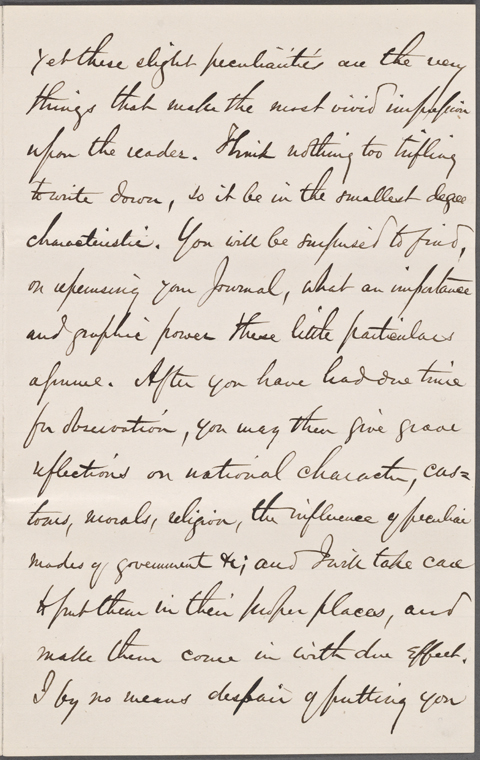 Yet these slight peculiarities are the very
things that make the most vivid impression
upon the reader. Think nothing too trifling
to write down, so it be in the smallest degee
characteristic. You will be surprised to find,
on reperusing your Journal, what an importance
and graphic power these little particulars
assume. After you have had due time
for observation, you may then give grave
reflections on national character, cus=
toms, morals, religion, the influence of peculiar
modes of government &c; and I will take care
to put them in their proper places, and
make them come in with due effect.
I by no means despair of putting you